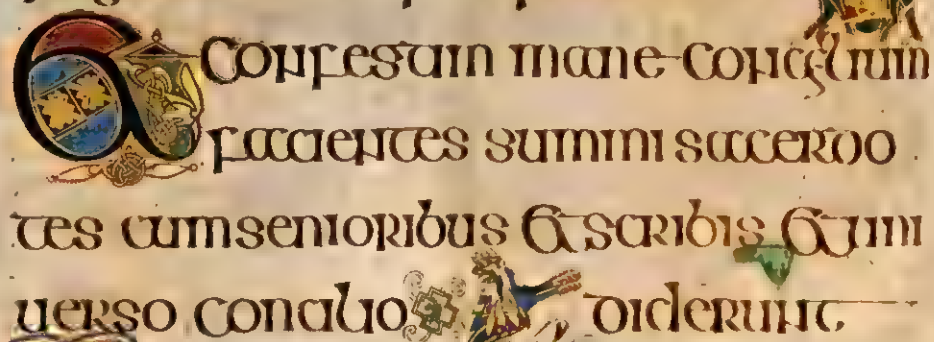 Et confestim mane consilium
facientes summi sacerdo
tes cum senioribus et scribis et uni
uerso concilio diderunt